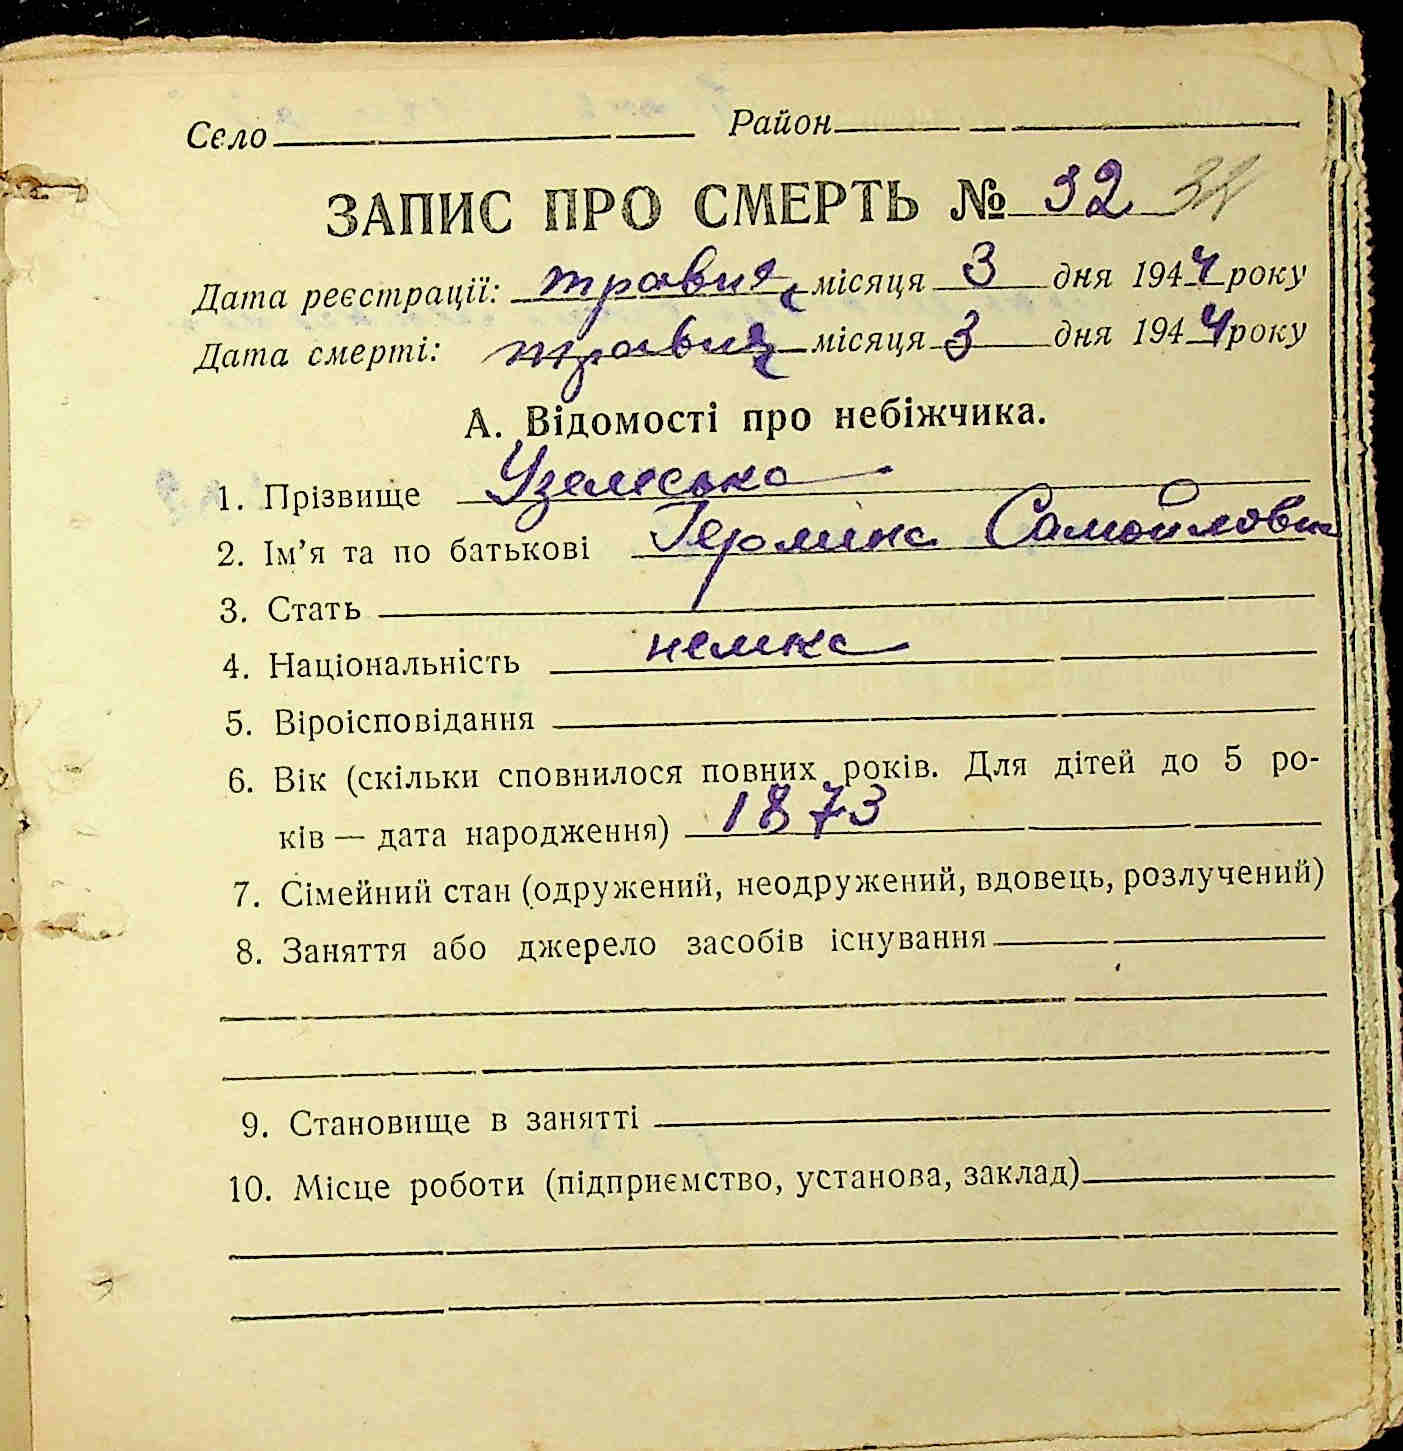 Село Район
ЗАПИС ПРО СМЕРТЬ № 32
Дата реєстрації: травня місяця 3 дня 1944 року
Дата смерті: травня місяця 3 дня 1944 року
А. Відомості про небіжчика.
1. Прізвище Уземська
2. Ім’я та по батькові Герміна Самойловн
3. Стать
4. Національність немка
5. Віроісповідання
6. Вік (скільки сповнилося повних років. Для дітей до 5 ро-
ків — дата народження) 1873
7. Сімейний стан (одружений, неодружений, вдовець, розлучений)
8. Заняття або джерело засобів існування
9. Становище в занятті
10. Місце роботи (підприємство, установа, заклад)